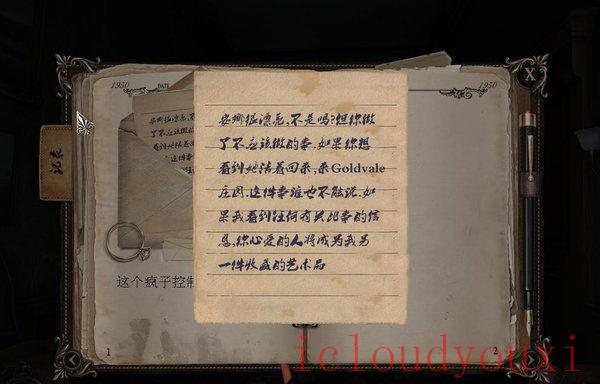 1950
DATE
1950
X
安娜很漂亮,不是吗?但你做
了不应该做的事.如果你想
看到她活着回来,来Goldvale
庄园.这件事谁也不能说.如
果我看到任何有关此事的信
息,你心爱的人将成为我另
一件收藏的艺术品
记录
这个疯子控制
1
2
icloudyouxi